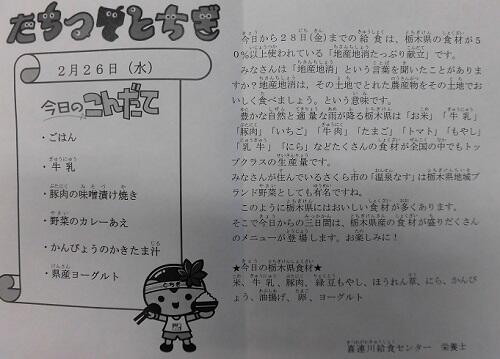 たちつてとちぎ
2月26日（水）
今日のこんだて
・ごはん
・牛乳
・豚肉の味噌漬け焼き
・野菜のカレーあえ
・かんぴょうのかきたま汁
・県産ヨーグルト
とちぎ
今日から２８日(金)までの給食は、栃木県の食材が５
０%以上使われている「地産地消たっぷり献立」です。
みなさんは「地産地消」という言葉を聞いたことがありま
すか？地産地消は、その土地でとれた農産物をその土地でお
いしく食べましょう。という意味です。
豊かな自然と適量な雨が降る栃木県は「お米」「牛乳」
「豚肉」「いちご」「牛肉」「たまご」「トマト」「もやし」
「乳牛」「にら」などたくさんの食材が全国の中でもトッ
プクラスの生産量です。
みなさんが住んでいるさくら市の「温泉なす」は栃木県地域ブ
ランド野菜としても有名ですね。
このように栃木県にはおいしい食材が多くあります。
そこで今日からの三日間は、栃木県産の食材が盛りだくさん
のメニューが登場します。お楽しみに！
★今日の栃木県食材★
米、牛乳、豚肉、緑豆もやし、ほうれん草、にら、かんぴ
ょう、油揚げ、卵、ヨーグルト
喜連川給食センター　栄養士